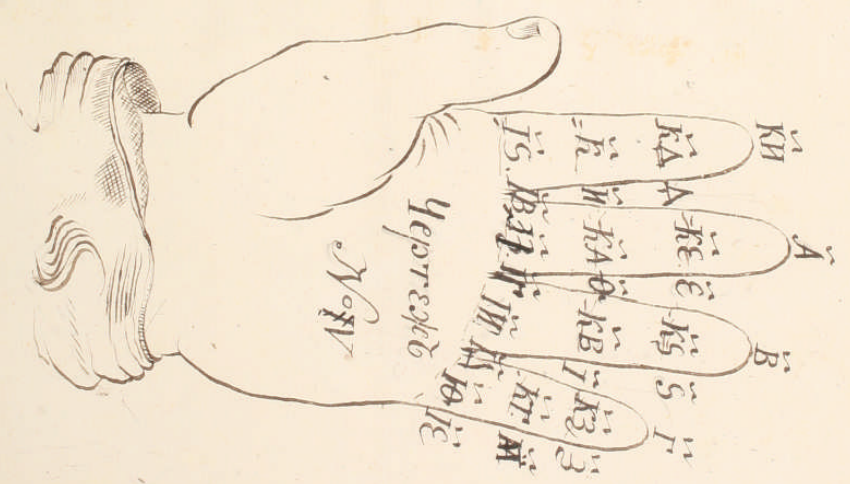 К҃И А҃ В҃ Г҃
К҃Д Д҃ К҃Е Е҃ К҃Ѕ Ѕ҃ К҃З З҃
К҃ И҃ К҃А Ѳ҃ К҃В І҃ К҃Г
І҃Ѕ І҃В І҃Г І҃И І҃Е
Чертежъ
No IV